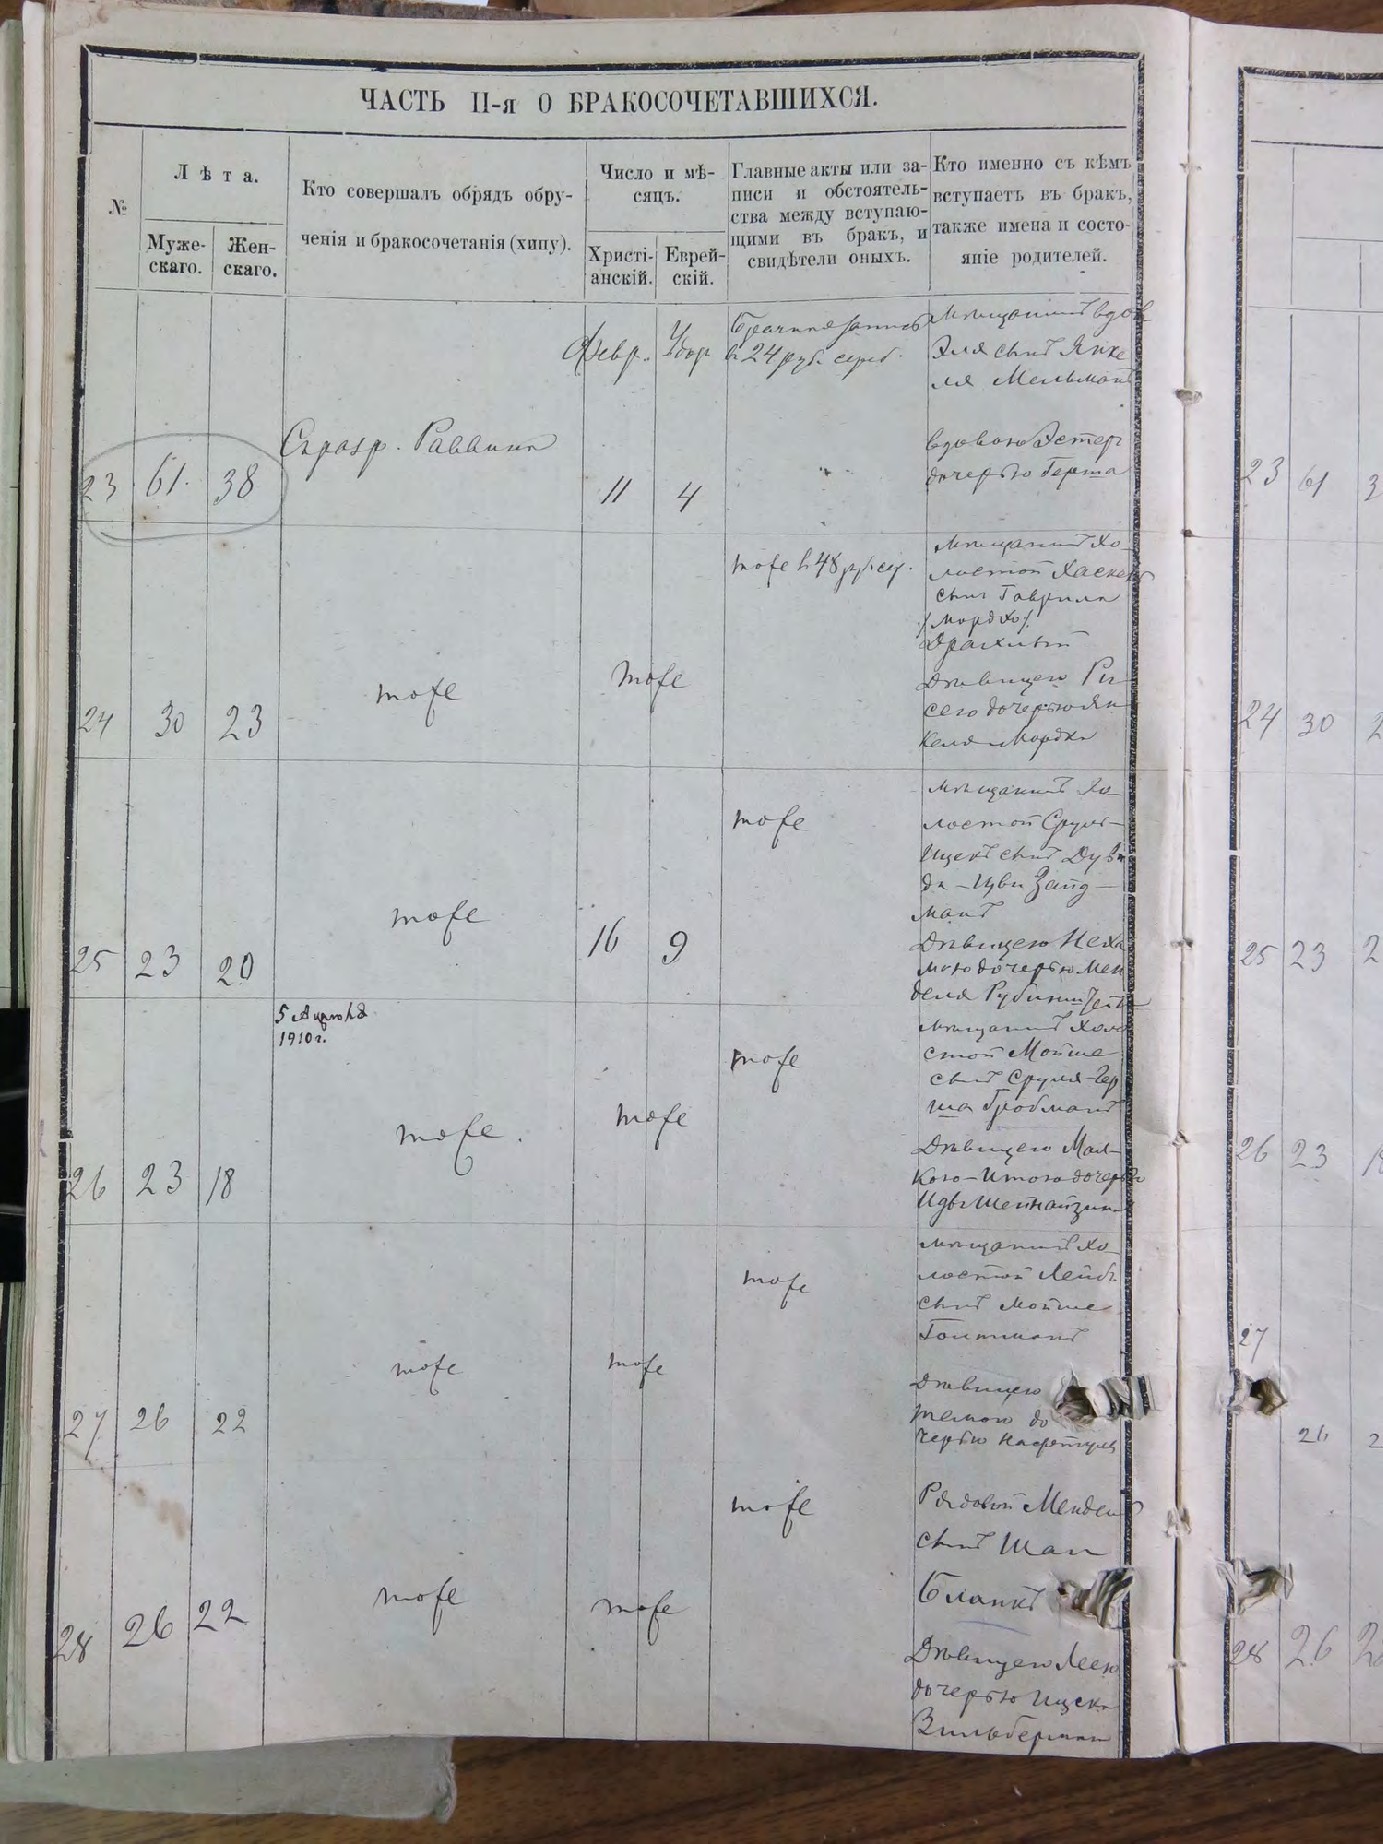 ЧАСТЬ II-я О БРАКОСОЧЕТАВШИХСЯ.
№
Лѣта.
Муже-
скаго.
Жен-
скаго.
Кто совершалъ обрядъ обру-
ченія и бракосочетанія (хипу).
Число и мѣ-
сяцъ.
Христі-
анскій.
Еврей-
скій.
Главные акты или за-
писи и обстоятель-
ства между вступаю-
щими въ бракъ, и
свидѣтели оныхъ.
Кто именно съ кѣмъ
вступаетъ въ бракъ,
также имена и состо-
яніе родителей.
23 61. 38
Раввинъ
Февр.
11 4
24 руб. сереб.
Мѣщанинъ вдов
Эля сынъ Янке
ля Мельманъ
вдовою Эстер
дочерью Герша
24 30 23
тоже
тоже
тоже в 48 руб сер.
Мѣщанинъ Хо-
лостой Хаскель
сынъ Гаврила
/Мордко/
Дѣвицею Ри
сею дочерью Ян
келя Мордка
25 23 20
тоже
16 9
тоже
Мѣщанинъ Хо-
лостой Сруль-
Ицекъ сынъ Дуви
да-Цви Зайд-
манъ
Дѣвицею Неха
мою дочерью Мен
деля
5 Апрѣля
1910 г.
26 23 18
тоже.
тоже
тоже
Мѣщанинъ Холо
стой Мойше
сынъ Сруля-Гер
ша Гробманъ
Дѣвицею Мал-
кою-Итою дочерью
27 26 22
тоже
тоже
тоже
Мѣщанинъ Хо-
лостой Лейбъ
сынъ Мойше
Гоитманъ
Дѣвицею
темою до
черью Нафтули
28 26 22
тоже
тоже
тоже
Рядовой Мендель
сынъ Шаи
Бланкъ
Дѣвицею Леею
дочерью Ицека
Зильберман
23 61 3
24 30 2
25 23 2
26 23 18
27
26 2
28 26 2